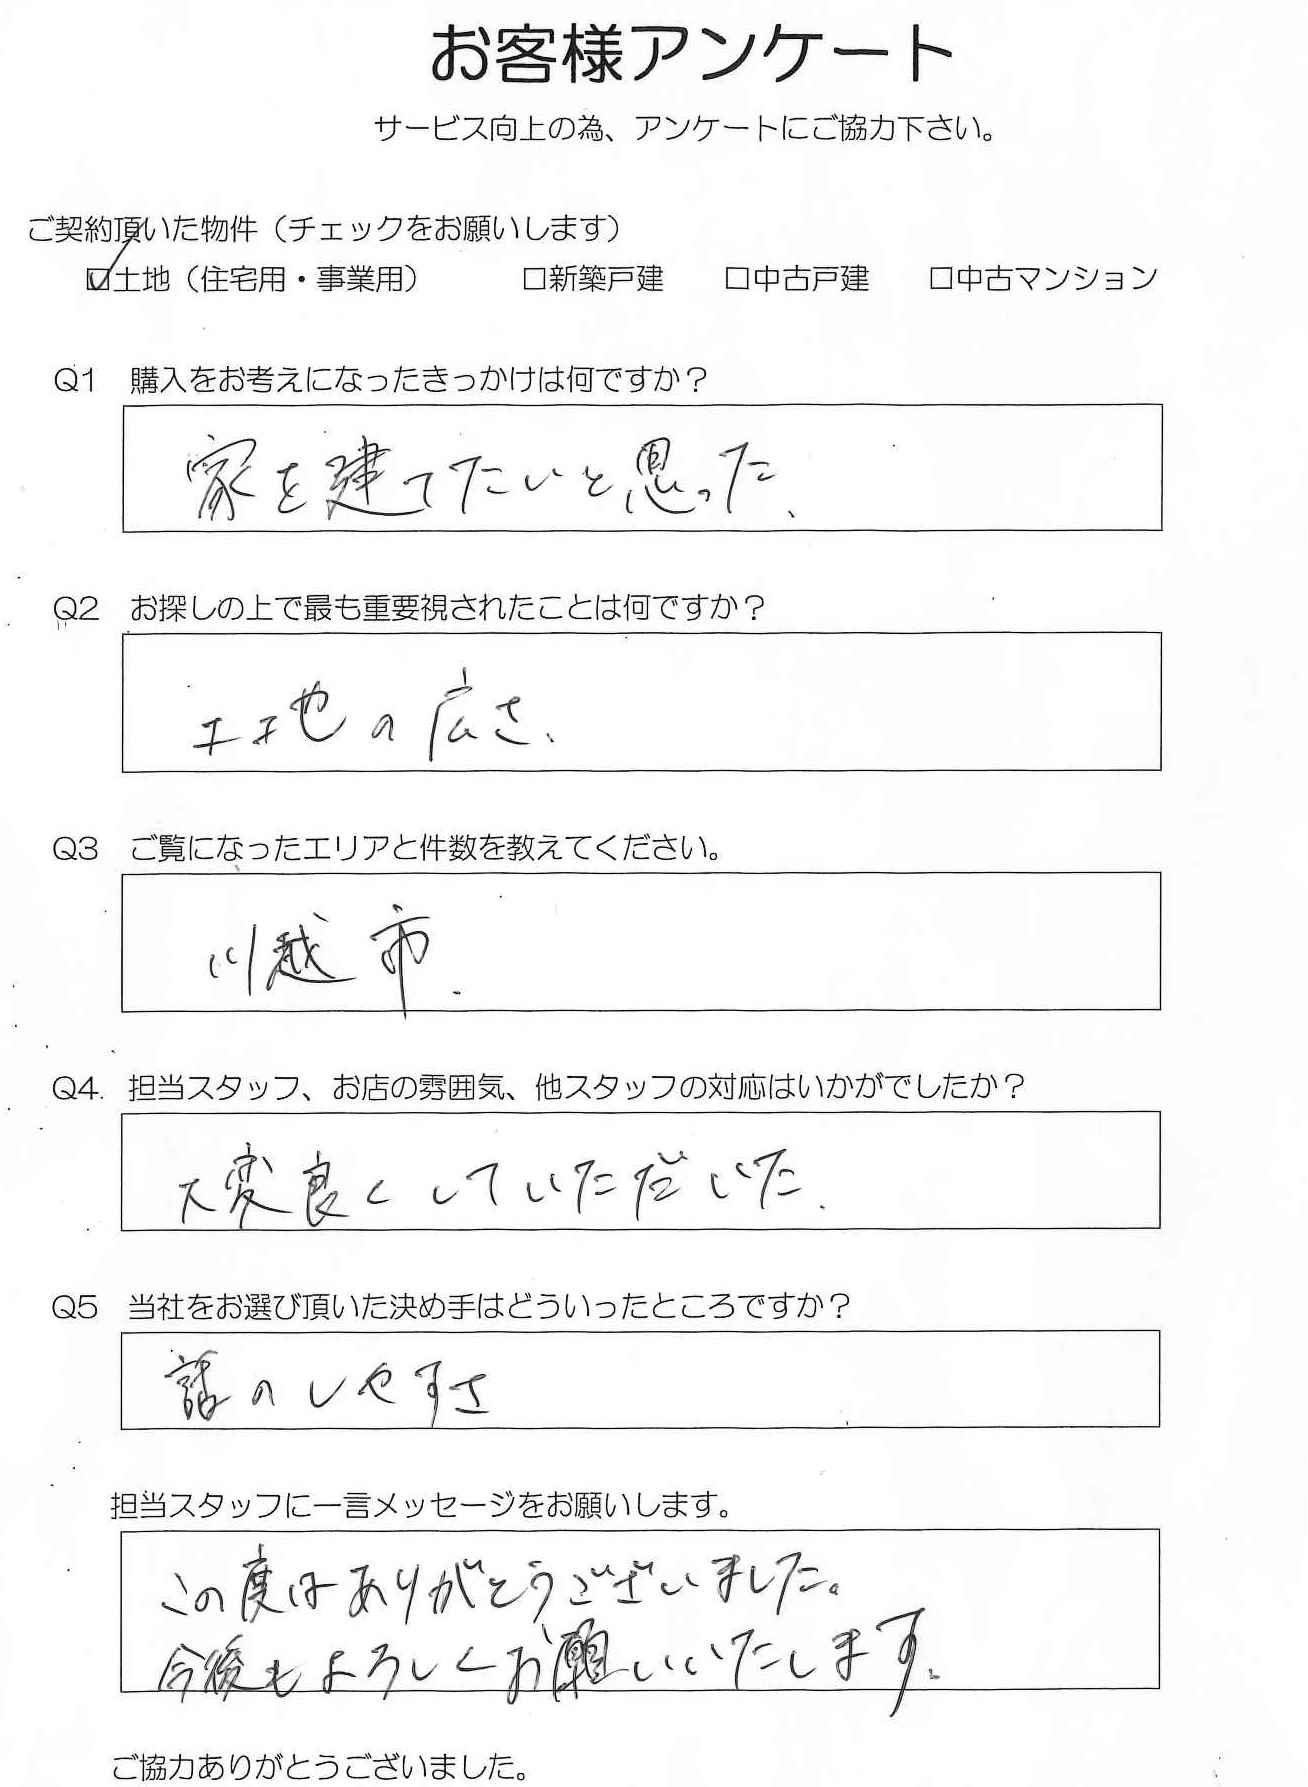 お客様アンケート
サービス向上の為、アンケートにご協力下さい。
ご契約頂いた物件（チェックをお願いします）
☑土地（住宅用・事業用）　□新築戸建　□中古戸建　□中古マンション
Q1　購入をお考えになったきっかけは何ですか？
家を建てたいと思った、
Q2　お探しの上で最も重要視されたことは何ですか？
土地の広さ、
Q3　ご覧になったエリアと件数を教えてください。
川越市.
Q4.　担当スタッフ、お店の雰囲気、他スタッフの対応はいかがでしたか？
大変良くしていただいた.
Q5　当社をお選び頂いた決め手はどういったところですか？
話のしやすさ
担当スタッフに一言メッセージをお願いします。
この度はありがとうございました。
今後もよろしくお願いいたします、
ご協力ありがとうございました。